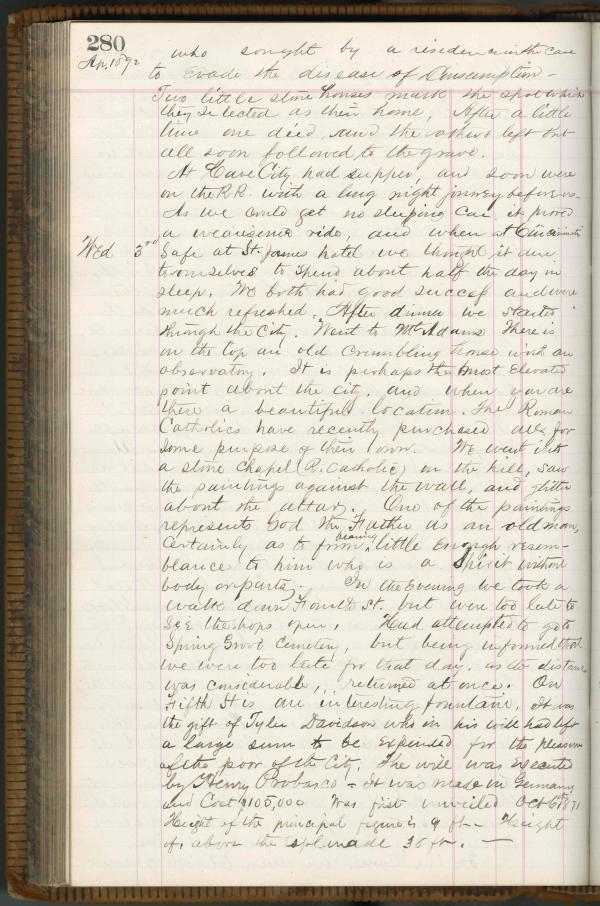 280
Ap. 1892
who sought by a residence in the cave
to evade the disease of Consumption -
Two little stone houses mark the spot which
they selected as their home, After a little
time one died, and the others left but
all soon followed to the grave.
At Cave City had supper, and soon were
on the R.R. with a long night journey before us -
As we could get no sleeping Car it proved
a wearisome ride, and when at Cincinnati
Wed 3rd Safe at St. James hotel we thought it due
to ourselves to spend about half the day in
sleep. We both had good success and were
much refreshed. After dinner we started
through the City. Went to Mt Adams There is
on the top an old Crumbling house with an
observatory. It is perhaps the most Elevated
point about the city, and when you are
there a beautiful location. The Roman
Catholics have recently purchased all for
some purpose of their own. We went into
a stone Chapel (R. Catholic) on the hill, saw
the paintings against the wall, and glitter
about the altar. One of the paintings
represents God the Father as an old man,
Certainly as to form bearing little enough resem-
blance to him who is a Spirit without
body or parts. In the Evening we took a
walk down Fourth St. but were too late to
see the shops open. Had attempted to go to
Spring Grove Cemetery, but being informed that
we were too late for that day, as the distance
was considerable, returned at once. On
Fifth St is an interesting fountain. It was
the gift of Tyler Davidson who in his will had left
a large sum to be expended for the pleasure
of the poor of the City. The will was executed
by Henry Probasco - It was made in Germany
and Cost $105,000 Was first unveiled Oct 6th 1871
Height of the principal figure is 9 ft - Height
of, above the Esplanade 38 ft. -